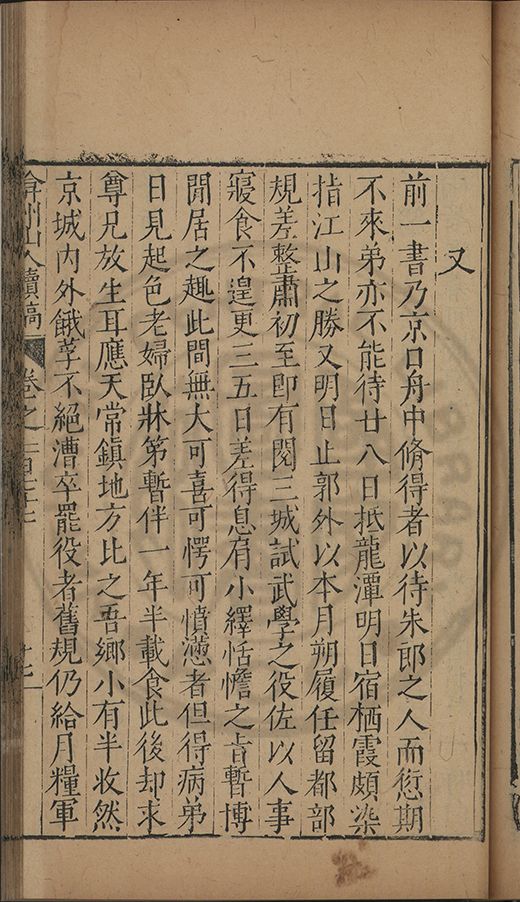 又
前一書乃京口舟中脩得者以待朱郎之人而愆期
不來弟亦不能待廿八日抵龍潭明日宿栖霞頗染
指江山之勝又明日止郭外以本月朔履任留都部
規差整肅初至即有閱三城試武學之役佐以人事
寢食不遑更三五日差得息有小繹恬憺之旨暫博
閒居之趣此間無大可喜可愕可憤懣者但得病弟
日見起色老婦臥牀第暫伴一年半載食此後却求
尊兄放生耳應天常鎮地方比之吾鄉小有半收然
京城內外餓莩不絕漕卒罷役者舊規仍給月糧軍
弇州山人續稿 卷之一百